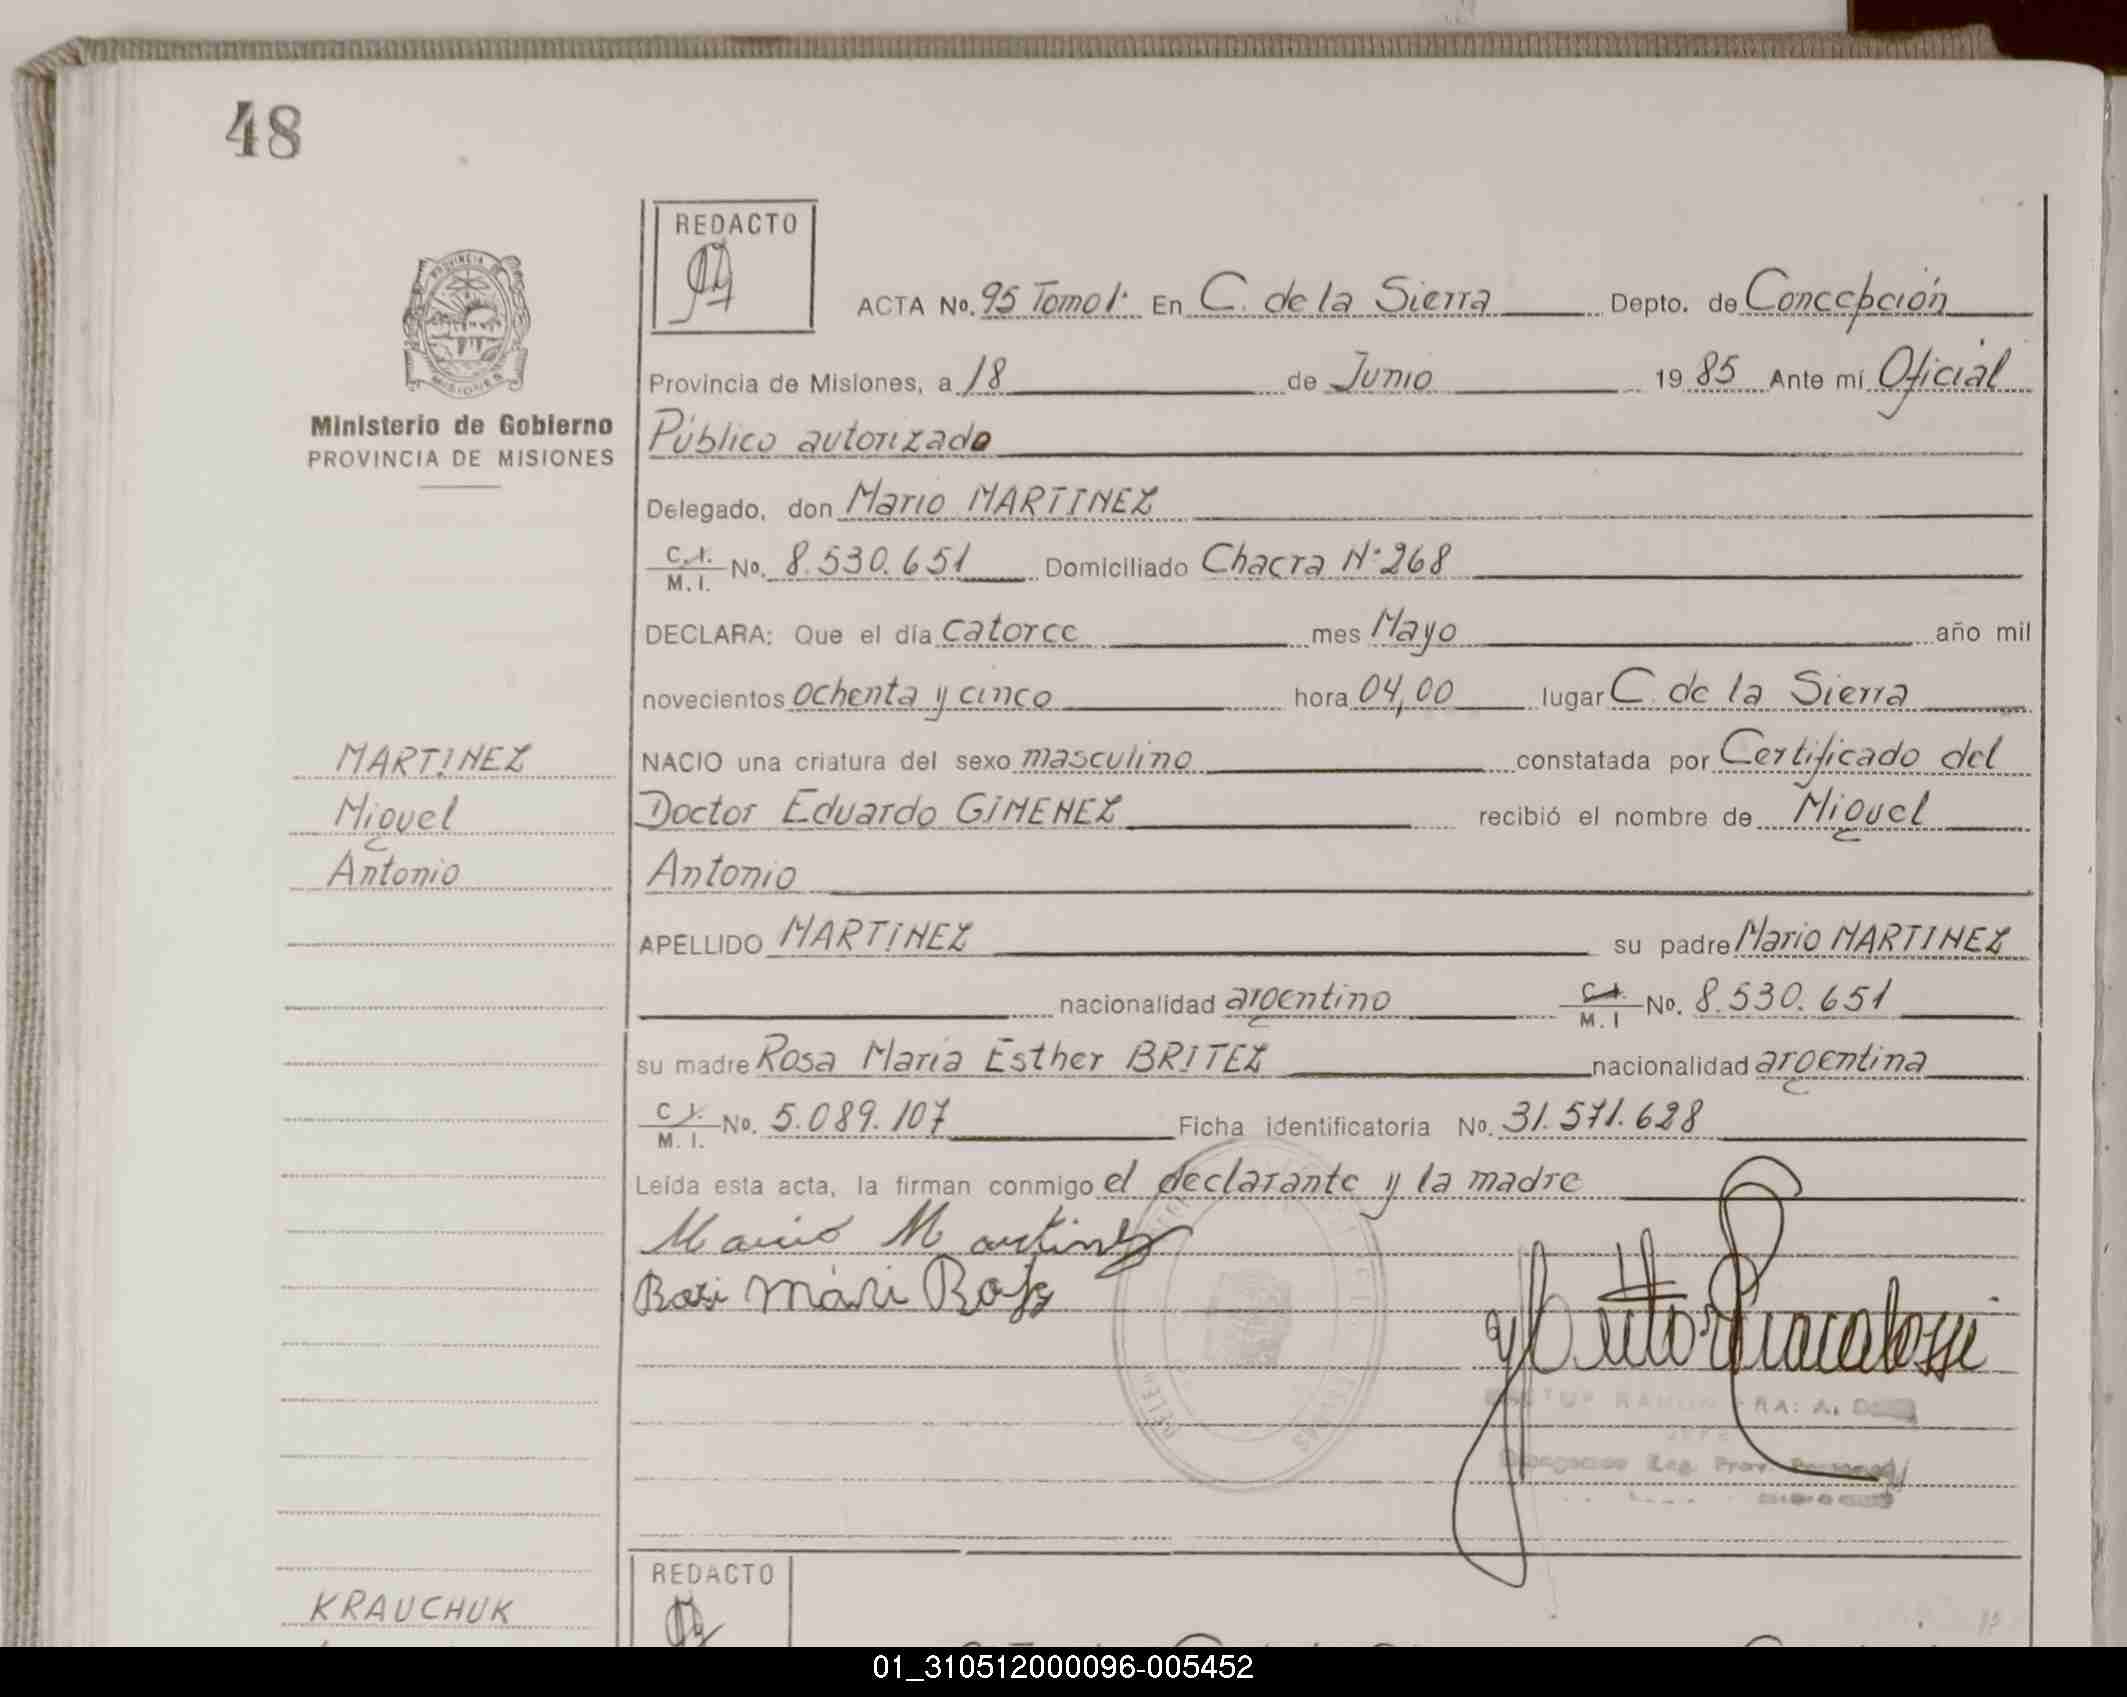 48
REDACTO
ACTA No. 95 Tomo 1· En C. de la Sierra Depto. de Concepción
PROVINCIA DE
MISIONES
Provincia de Misiones, a 18 de Junio 1985 Ante mí Oficial
Ministerio de Gobierno
PROVINCIA DE MISIONES
Público autorizado
Delegado, don Mario MARTINEZ
C.I. M.I. No. 8.530.651 Domiciliado Chacra Nº 268
DECLARA: Que el día catorce mes Mayo año mil
novecientos ochenta y cinco hora 04,00 lugar C. de la Sierra
MARTINEZ
NACIO una criatura del sexo masculino constatada por Certificado del
Miguel
Doctor Eduardo GIMENEZ recibió el nombre de Miguel
Antonio
Antonio
APELLIDO MARTINEZ su padre Mario MARTINEZ
nacionalidad argentino C.I. M.I No. 8.530.651
su madre Rosa María Esther BRITEZ nacionalidad argentina
C.I. M.I. No. 5.089.107 Ficha identificatoria No. 31.571.628
Leída esta acta, la firman conmigo el declarante y la madre
Mario Martinez
REDACTO
KRAUCHUK
01_310512000096-005452